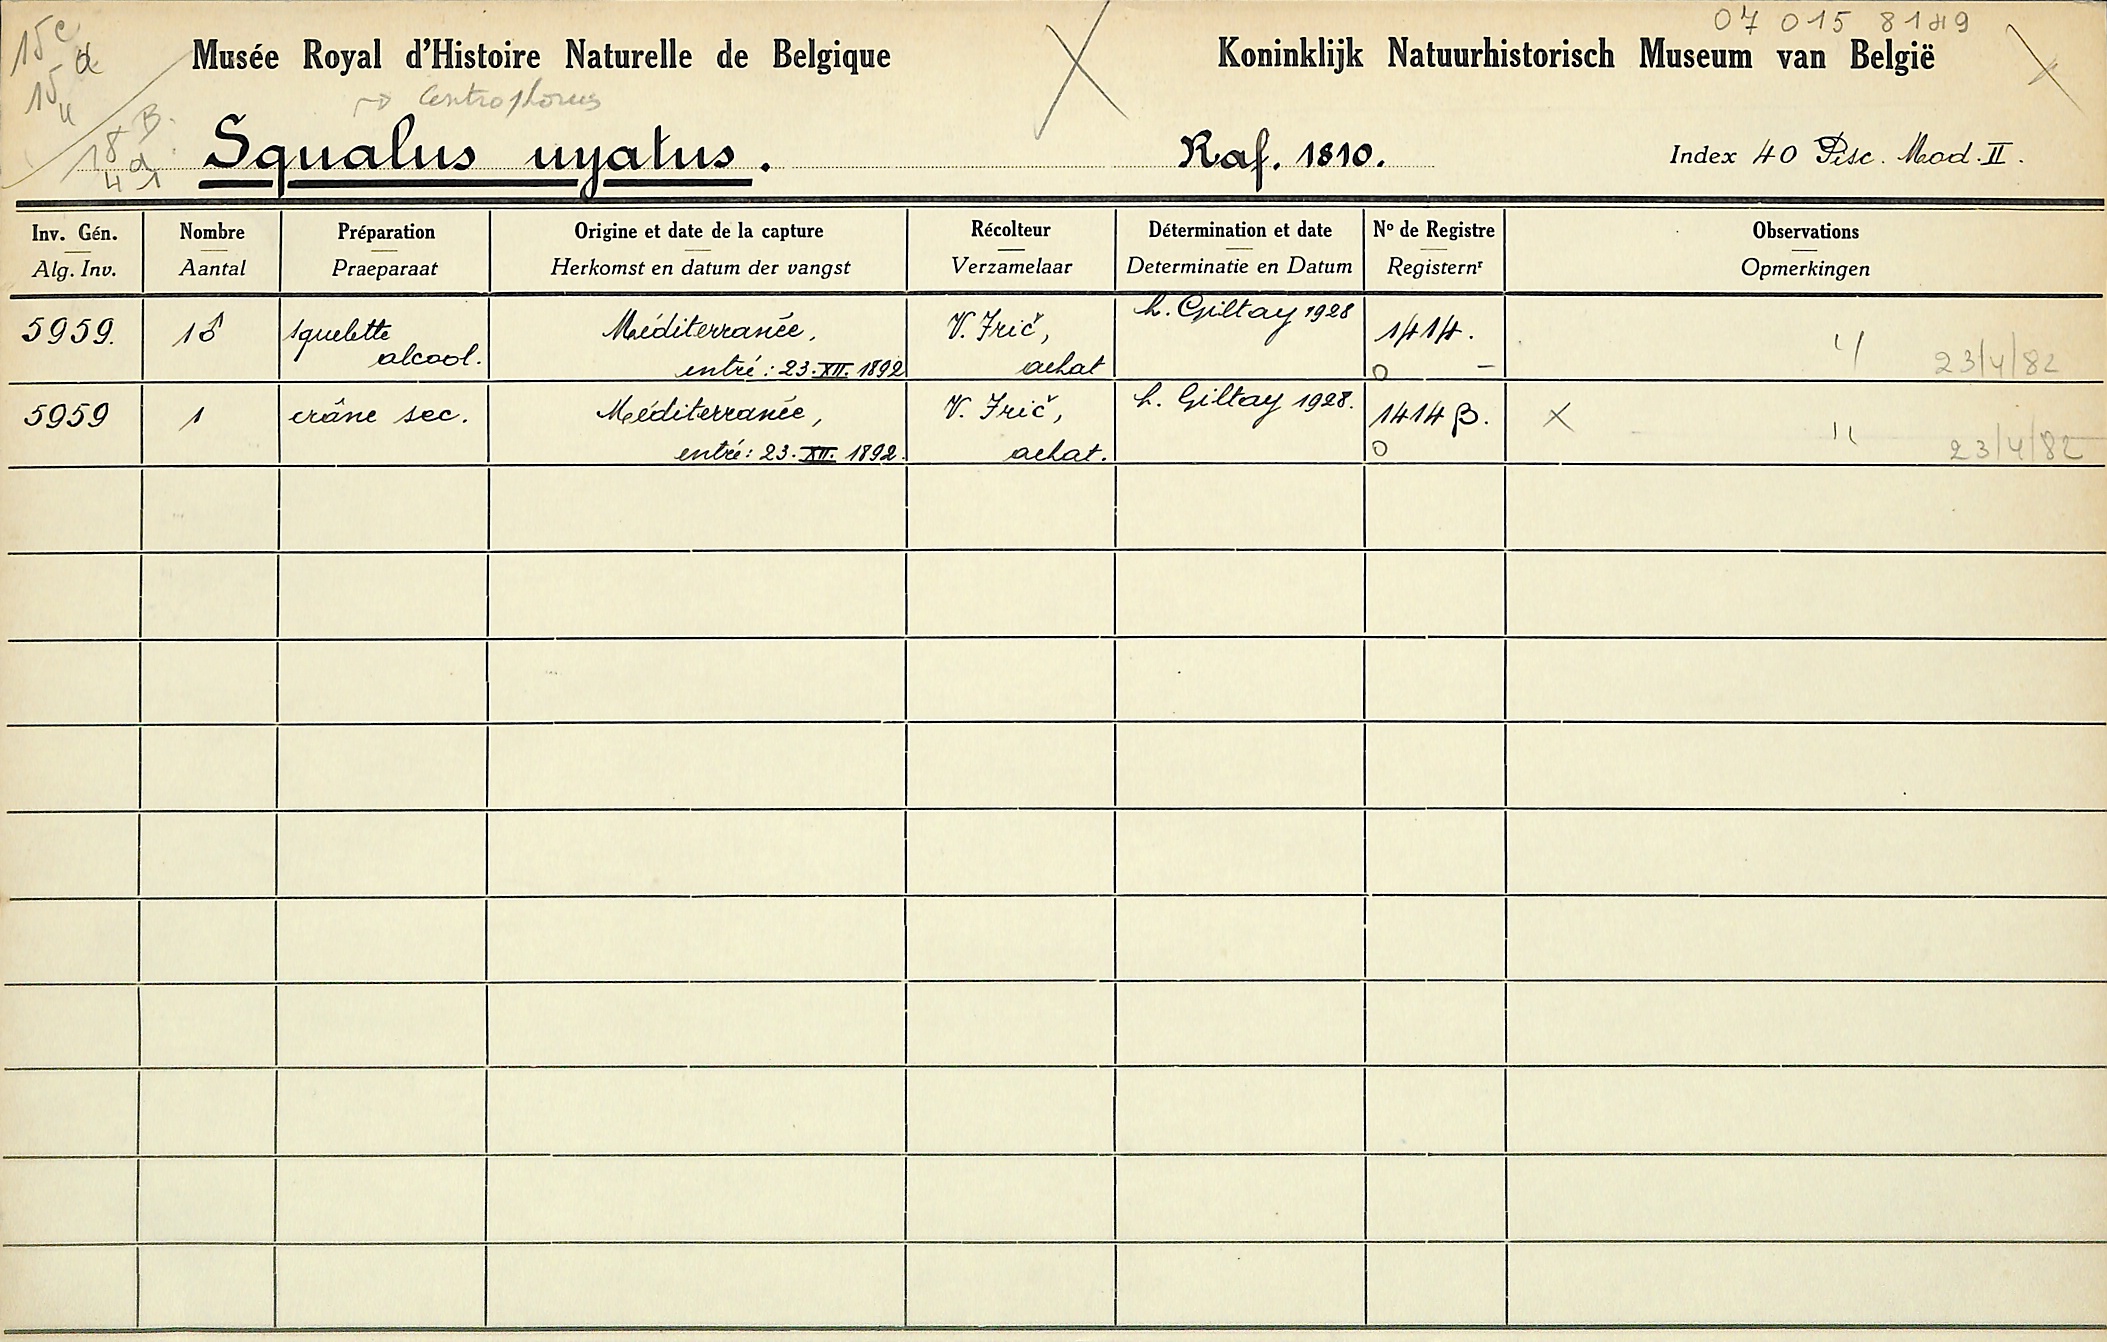 07 015 8149
15c
d
Musée Royal d'Histoire Naturelle de Belgique
Koninklijk Natuurhistorisch Museum van België
15
4
→ Centrophorus
18 B.
4 d 1
Squalus uyatus.
Raf. 1810.
Index 40 Pisc. Mod. II.
Inv. Gén. Nombre Préparation Origine et date de la capture Récolteur Détermination et date Nº de Registre Observations
Alg. Inv. Aantal Praeparaat Herkomst en datum der vangst Verzamelaar Determinatie en Datum Registernr Opmerkingen
5959. 1♂ squelette Méditerranée, V. Frič, L. Giltay 1928 1414.
alcool. entré: 23.XII.1892 achat 0 – 23/4/82
5959 1 crâne sec. Méditerranée, V. Frič, L. Giltay 1928. 1414 β. X
entré: 23.XII.1892. achat. 0 23/4/82